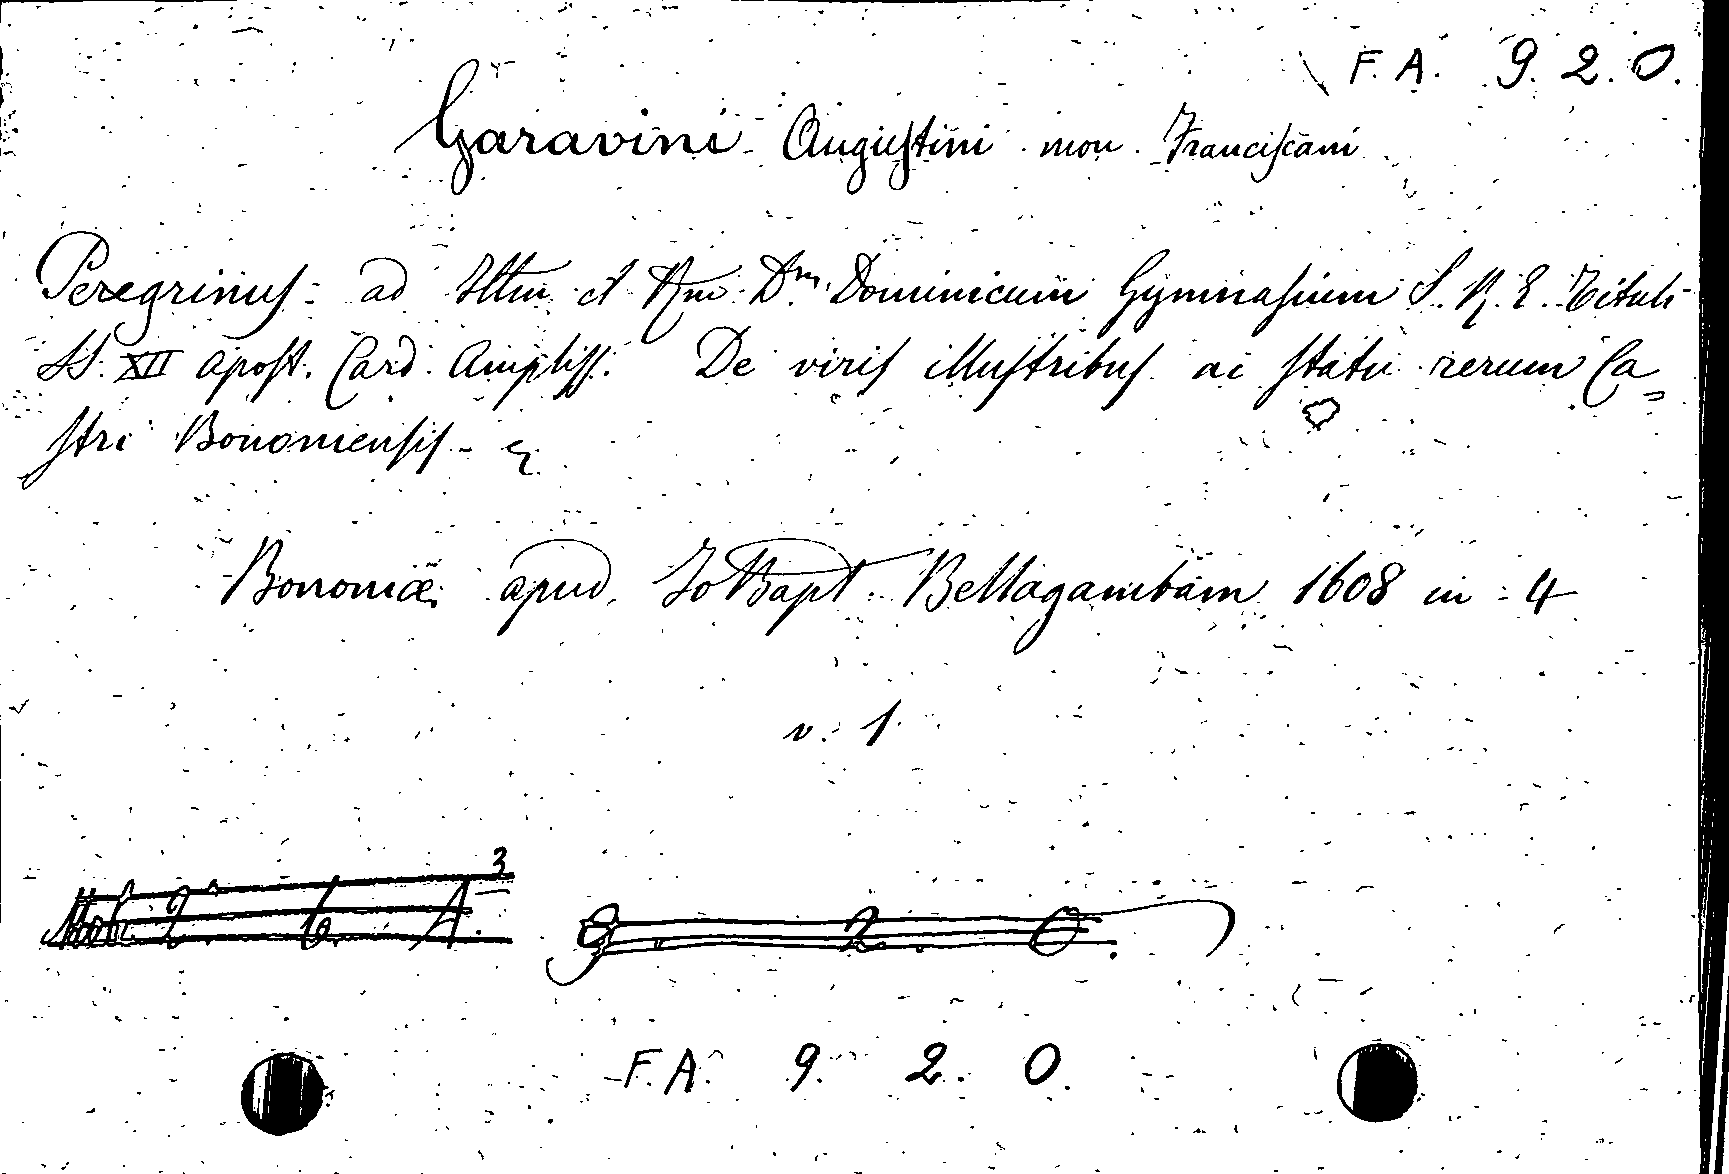 F. A. 9. 2. O.
Garavini Augustini mon. Franciscani
Peregrinus: ad Illm et Rm Dm. Dominicum Gymnasium S. R. E. Tituli
SS. XII apost. Card. Ampliss. De viris illustribus ac statu rerum Ca=
stri Bononiensis -
Bononiæ apud Jo Bapt. Bellagambam 1608 in - 4
v. 1.
2. 6. A. 3
9. 2. O.
F. A. 9. 2. O.